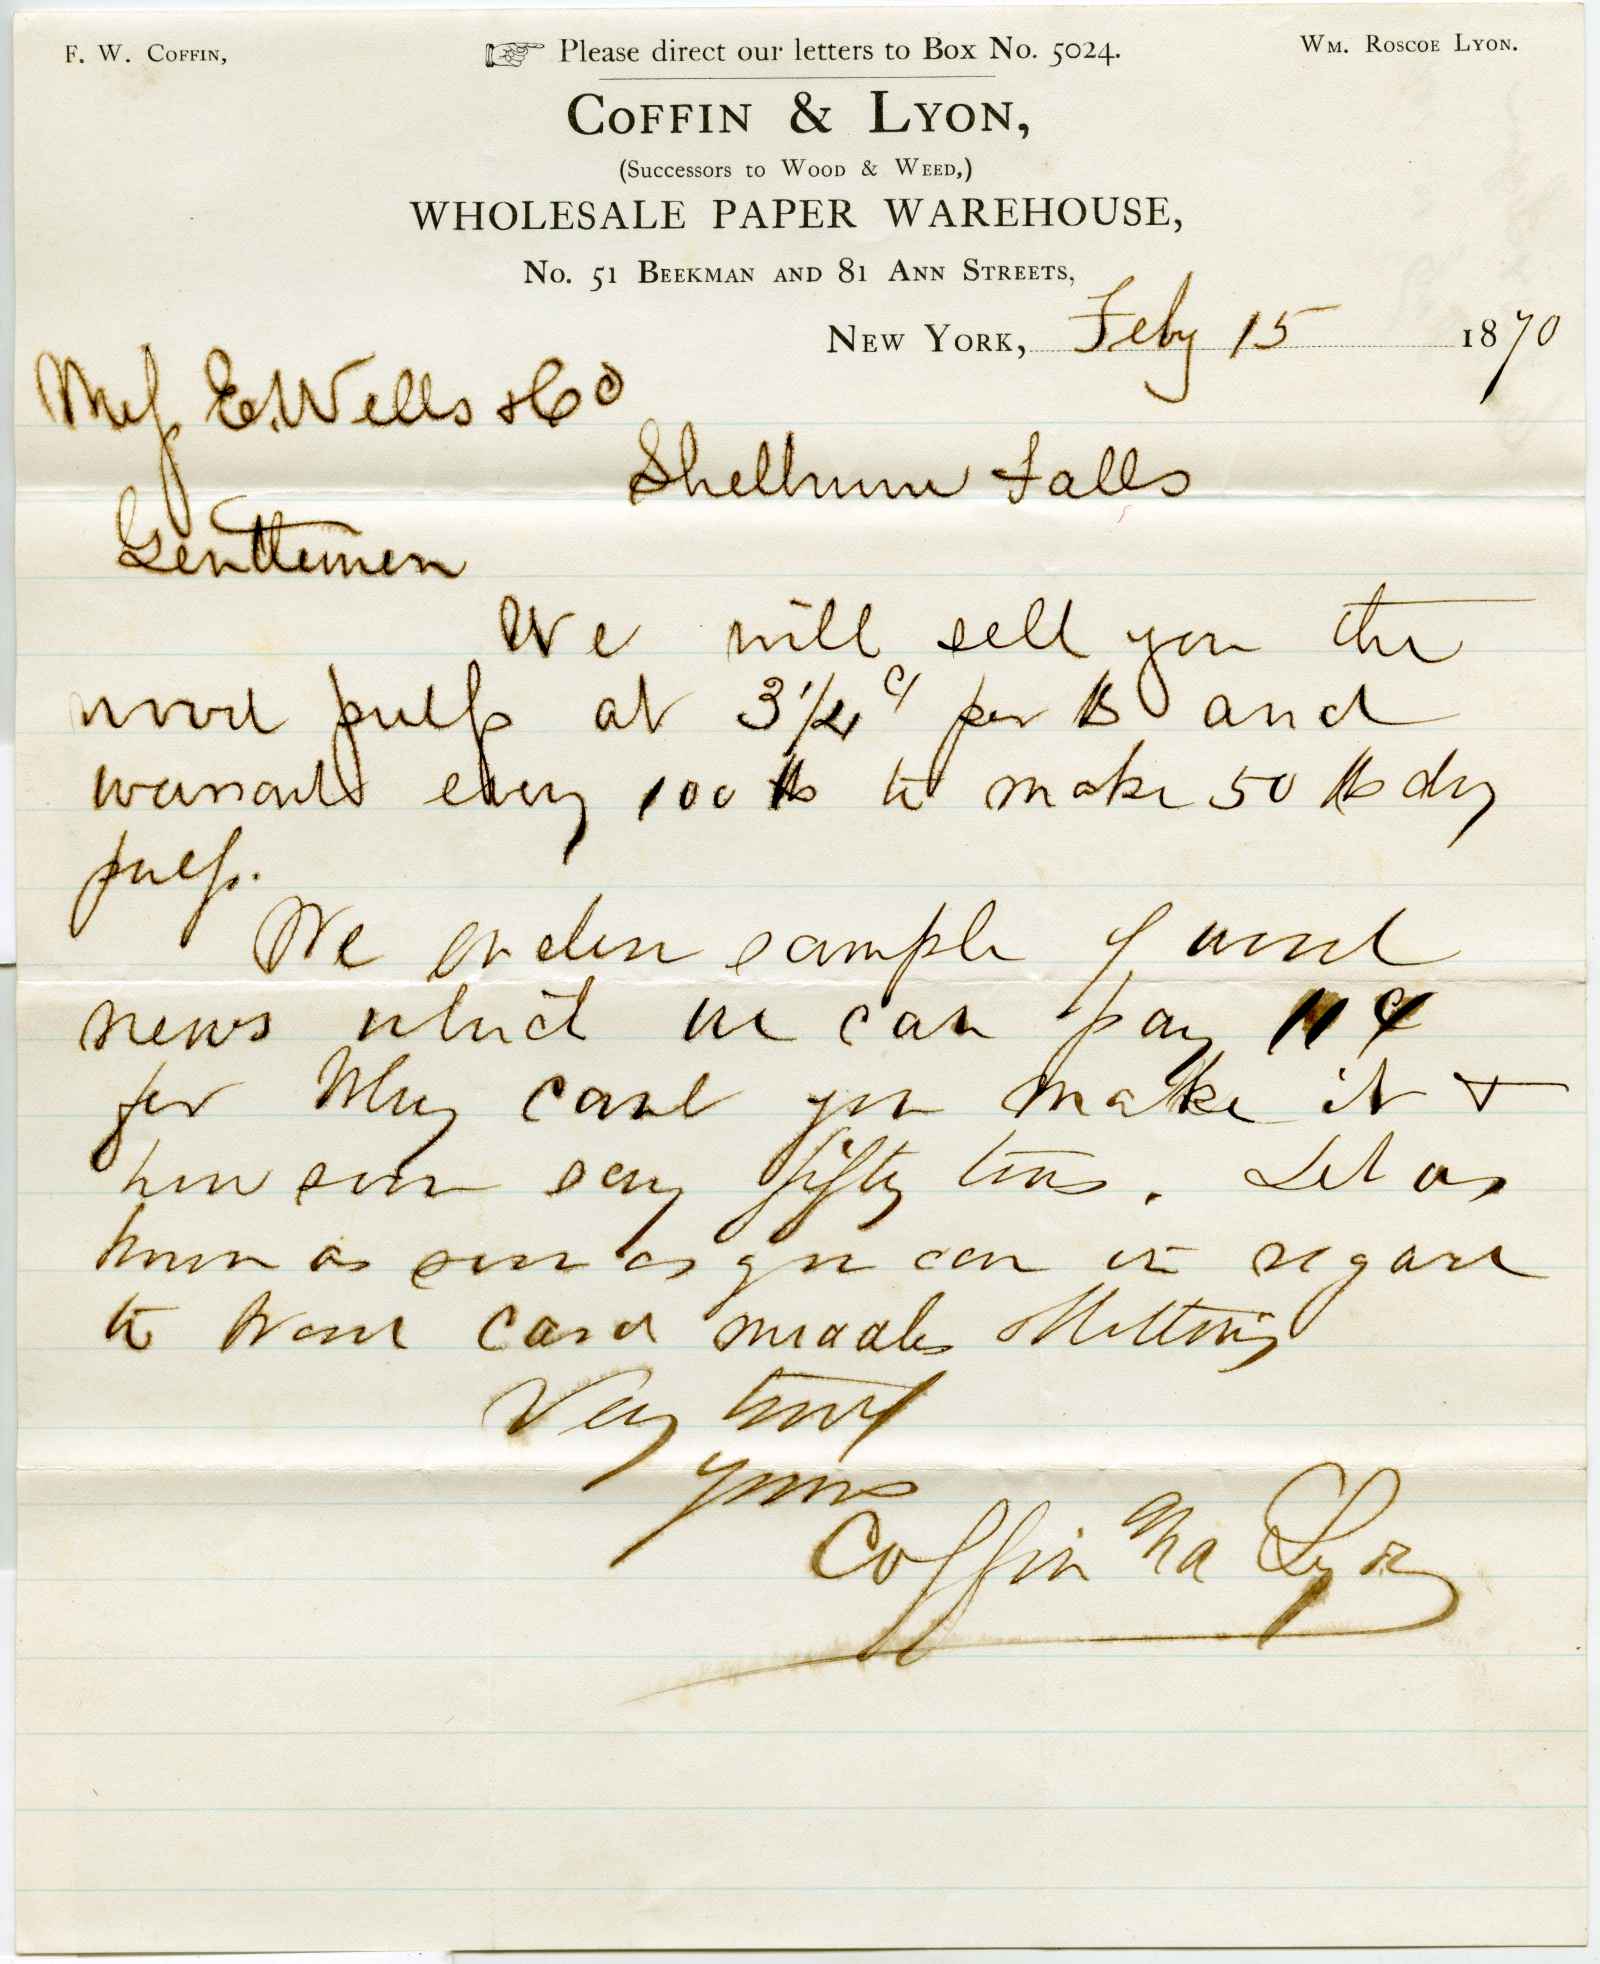 F. W. Coffin,
Please direct our letters to Box No. 5024.
Wm. Roscoe Lyon.
Coffin & Lyon,
(Successors to Wood & Weed,)
WHOLESALE PAPER WAREHOUSE,
No. 51 Beekman and 81 Ann Streets,
New York, Feby 15 1870
Mess E. Wells & Co
Shelburne Falls
Gentlemen
We will sell you the
wood pulp at 3 1/4 c/ per lb and
warrant every 100 lbs to make 50 lbs dry
pulp.
We enclose sample of wood
news which we can pay 11 ¢
for Why cant you make it &
how soon say fifty tons. Let us
know as soon as you can in regard
to card middles
Very truly
yours
Coffin Lyon